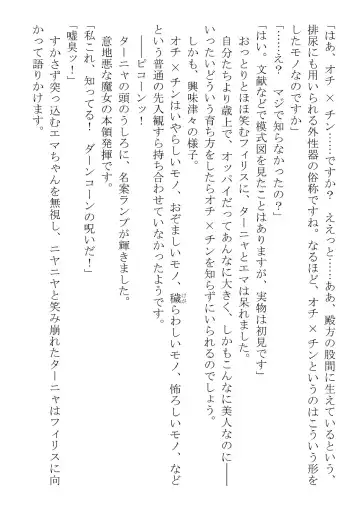 「はあ、オチ×チン……ですか？　ええっと……ああ、殿方の股間に生えているという、
排尿にも用いられる外性器の俗称ですね。なるほど、オチ×チンというのはこういう形を
したモノなのですか」
「……え？　マジで知らなかったの？」
「はい。文献などで模式図を見たことはありますが、実物は初見です」
おっとりとほほ笑むフィリスに、ターニャとエマは呆れました。
自分たちより歳上で、オッパイだってあんなに大きく、しかもこんなに美人なのに――
いったいどういう育ち方をしたらオチ×チンを知らずにいられるのでしょう。
しかも、興味津々の様子。
オチ×チンはいやらしいモノ、おぞましいモノ、穢らわしいモノ、怖ろしいモノ、など
という普通の先入観すら持ち合わせていなかったようです。
――ピコーンッ！
ターニャの頭のうしろに、名案ランプが輝きました。
意地悪な魔女の本領発揮です。
「私これ、知ってる！　ダーンコーンの呪いだ！」
「嘘臭ッ！」
すかさず突っ込むエマちゃんを無視し、ニヤニヤと笑み崩れたターニャはフィリスに向
かって語りかけます。